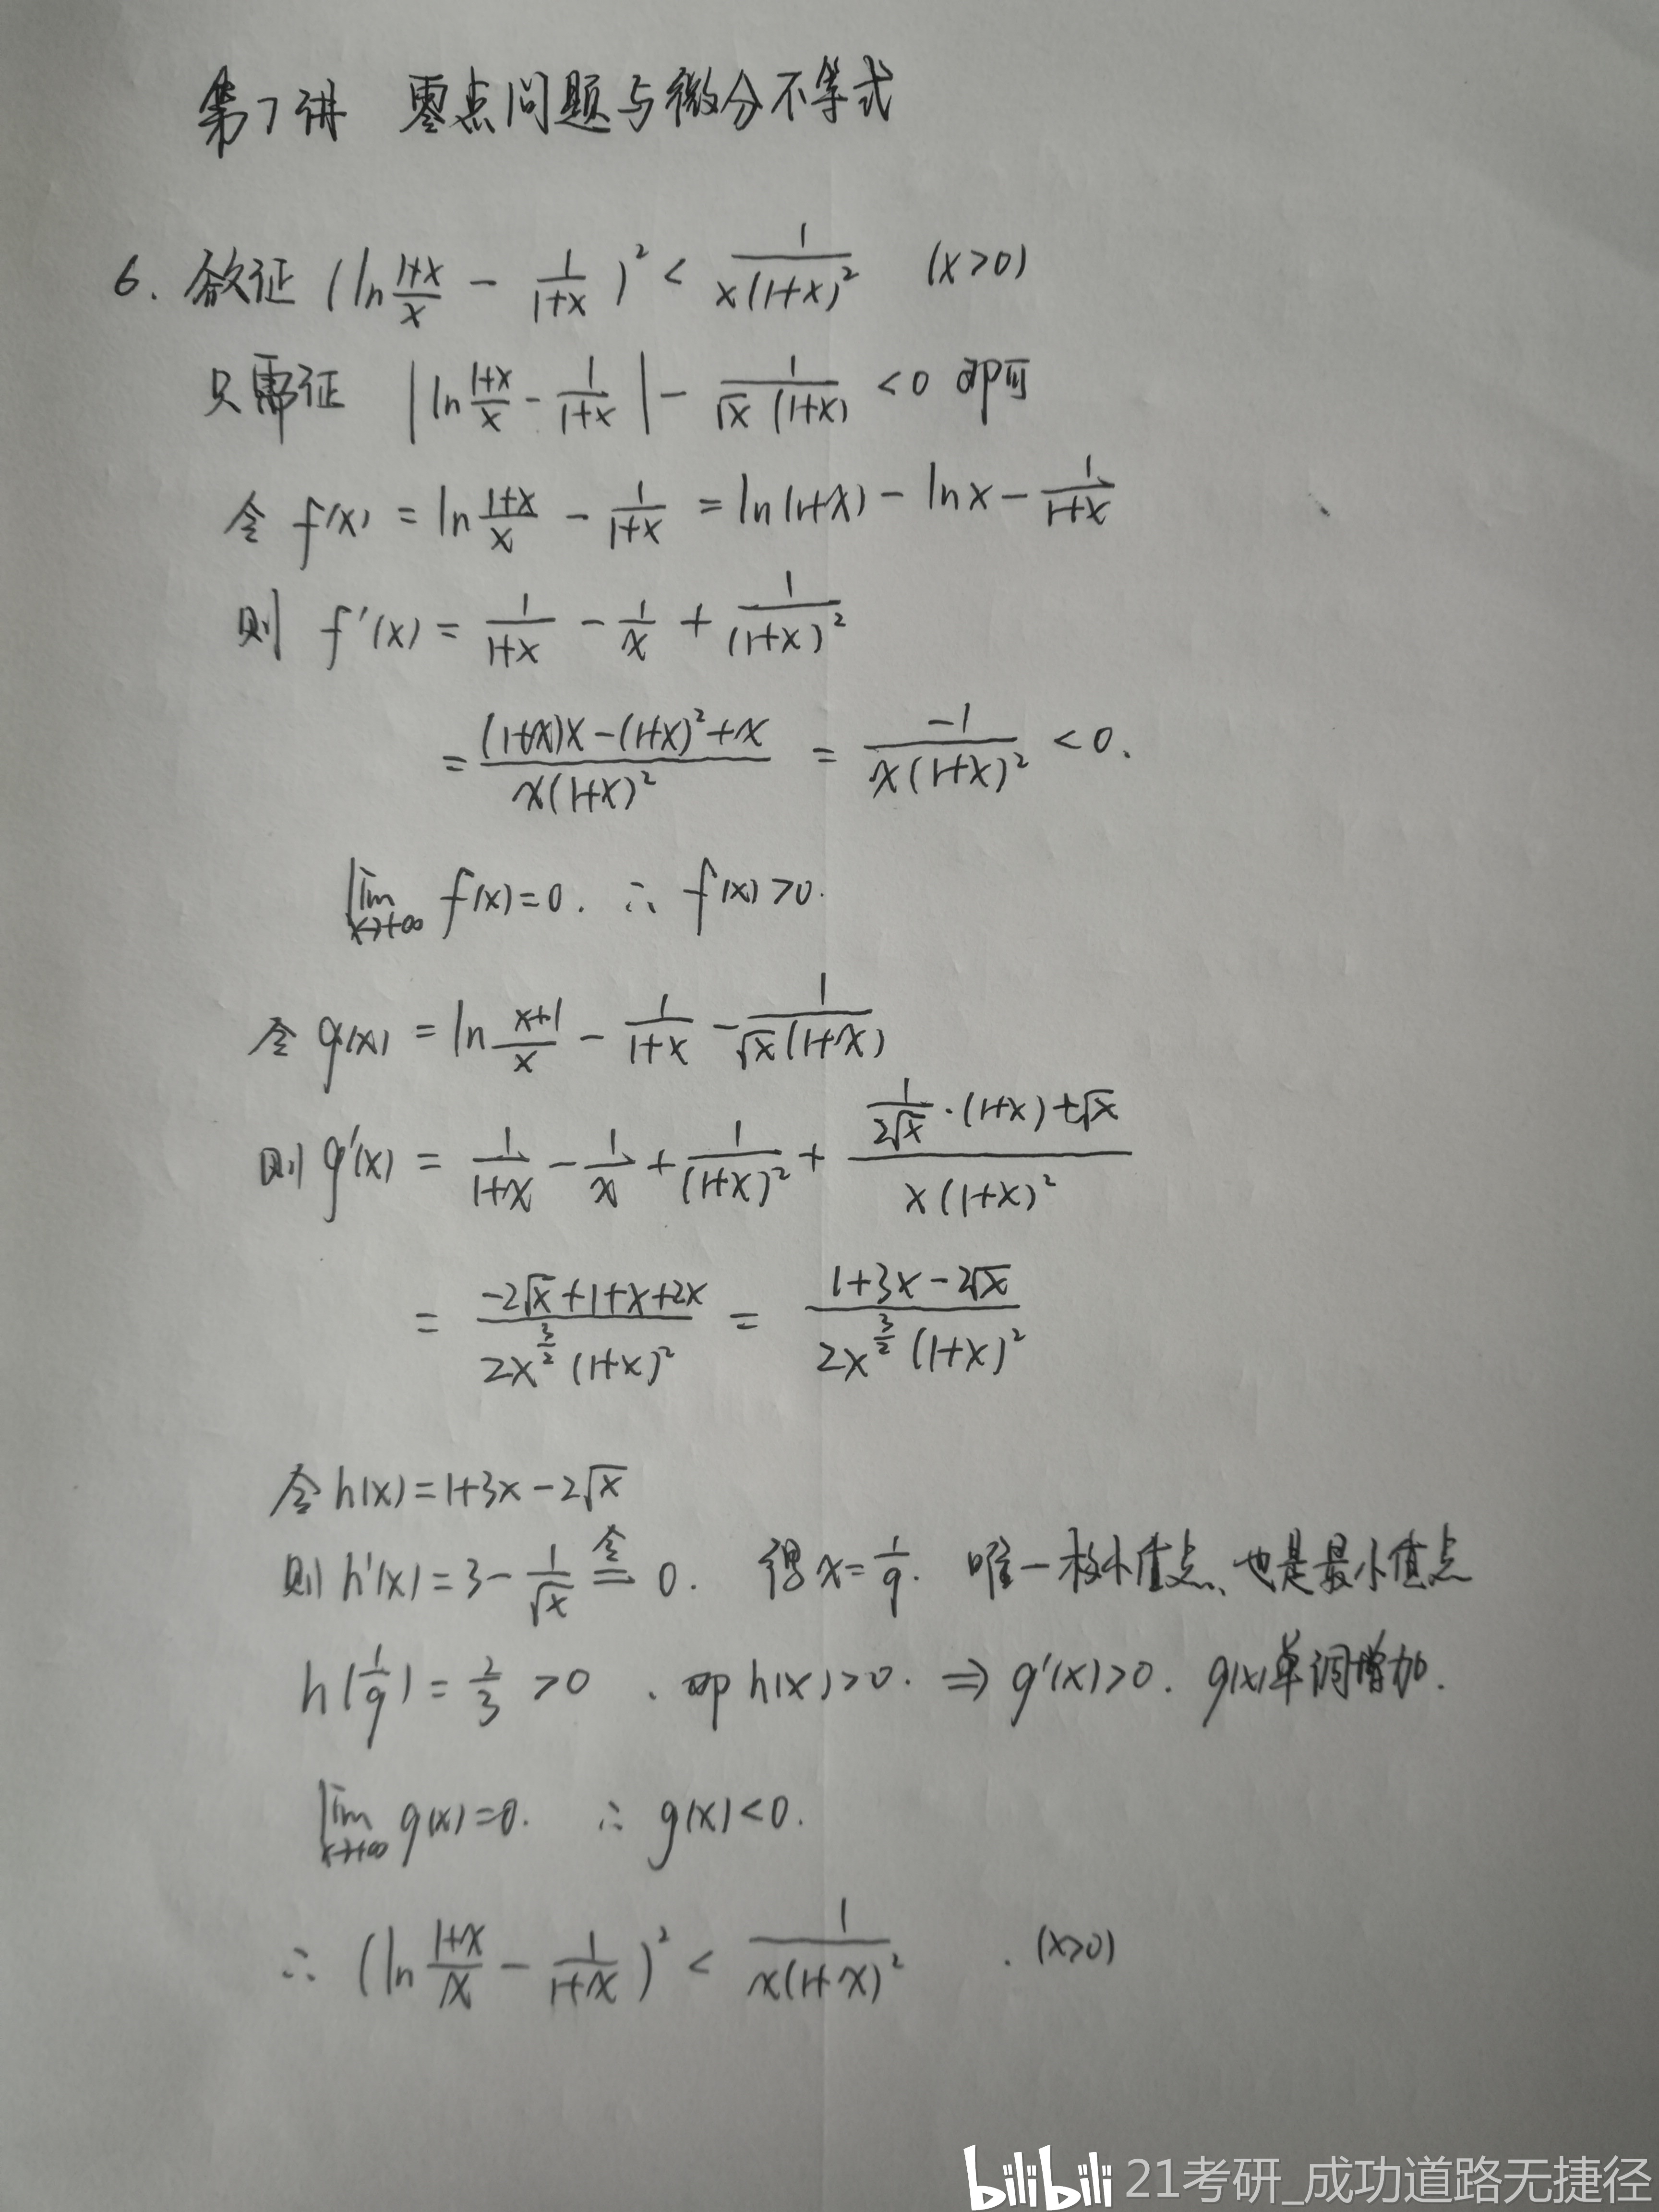 第7讲 零点问题与微分不等式
6. 欲证 (ln (1+x)/x - 1/(1+x))² < 1/(x(1+x)²) (x>0)
只需证 |ln (1+x)/x - 1/(1+x)| - 1/(√x (1+x)) <0 即可
令 f(x) = ln (1+x)/x - 1/(1+x) = ln(1+x) - lnx - 1/(1+x)
则 f'(x) = 1/(1+x) - 1/x + 1/(1+x)²
= ((1+x)x-(1+x)²+x)/(x(1+x)²) = -1/(x(1+x)²) <0.
lim x→+∞ f(x)=0. ∴ f(x)>0.
令 g(x) = ln (x+1)/x - 1/(1+x) - 1/(√x(1+x))
则 g'(x) = 1/(1+x) - 1/x + 1/(1+x)² + (1/(2√x)·(1+x)+√x)/(x(1+x)²)
= (-2√x+1+x+2x)/(2x^(3/2) (1+x)²) = (1+3x-2√x)/(2x^(3/2) (1+x)²)
令 h(x)=1+3x-2√x
则 h'(x)=3- 1/√x 令= 0. 得 x=1/9. 唯一极小值点、也是最小值点
h(1/9) = 2/3 >0 、即 h(x)>0. ⇒ g'(x)>0. g(x)单调增加.
lim x→+∞ g(x)=0. ∴ g(x)<0.
∴ (ln (1+x)/x - 1/(1+x))² < 1/(x(1+x)²) . (x>0)
bilibili 21考研_成功道路无捷径